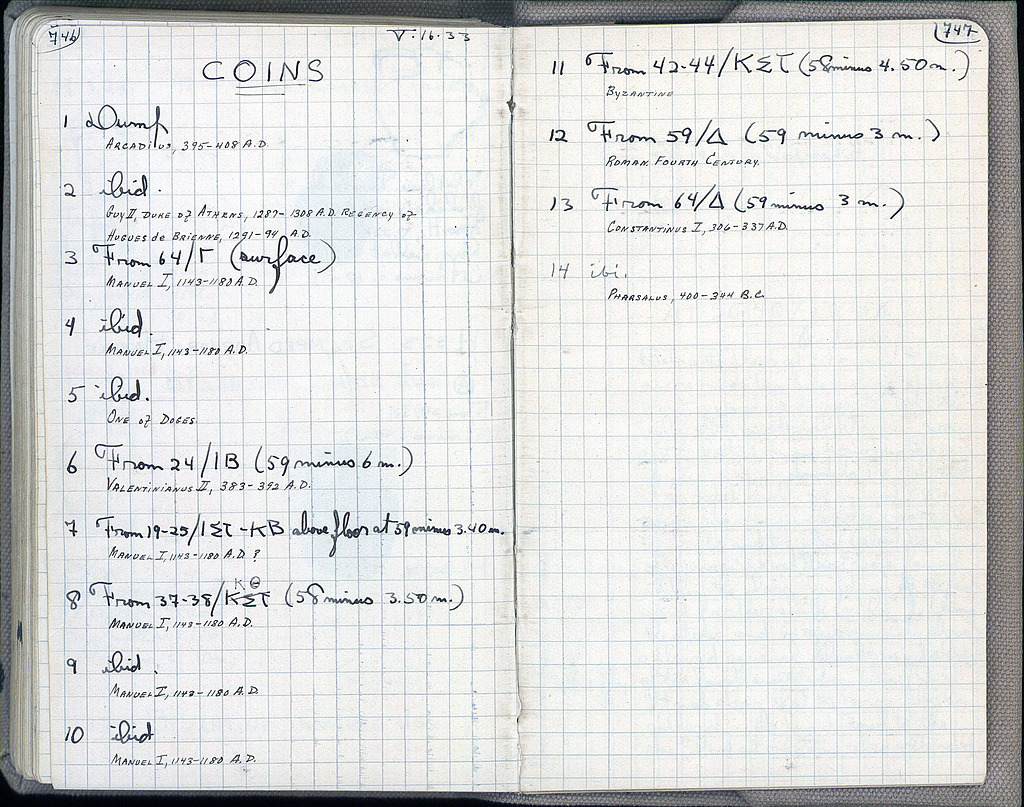 746
V·16·33
COINS
1 Dump
ARCADIUS, 395-408 A.D.
2 ibid.
GUY II, DUKE of ATHENS, 1287-1308 A.D. REGENCY of
HUGUES de BRIENNE, 1291-94 A.D.
3 From 64/Γ (surface)
MANUEL I, 1143-1180 A.D.
4 ibid.
MANUEL I, 1143-1180 A.D.
5 ibid.
ONE of DOGES.
6 From 24/ΙΒ (59 minus 6 m.)
VALENTINIANUS II, 383-392 A.D.
7 From 19-25/ΙΣΤ-ΚΒ above floor at 59 minus 3.40 m.
MANUEL I, 1143-1180 A.D. ?
ΚΘ
8 From 37-38/ΚΣΤ (58 minus 3.50 m.)
MANUEL I, 1143-1180 A.D.
9 ibid.
MANUEL I, 1143-1180 A.D.
10 ibid
MANUEL I, 1143-1180 A.D.
747
11 From 42-44/ΚΣΤ (58 minus 4.50 m.)
BYZANTINE
12 From 59/Δ (59 minus 3 m.)
ROMAN. FOURTH CENTURY.
13 From 64/Δ (59 minus 3 m.)
CONSTANTINUS I, 306-337 A.D.
14 ibi.
PHARSALUS, 400-344 B.C.